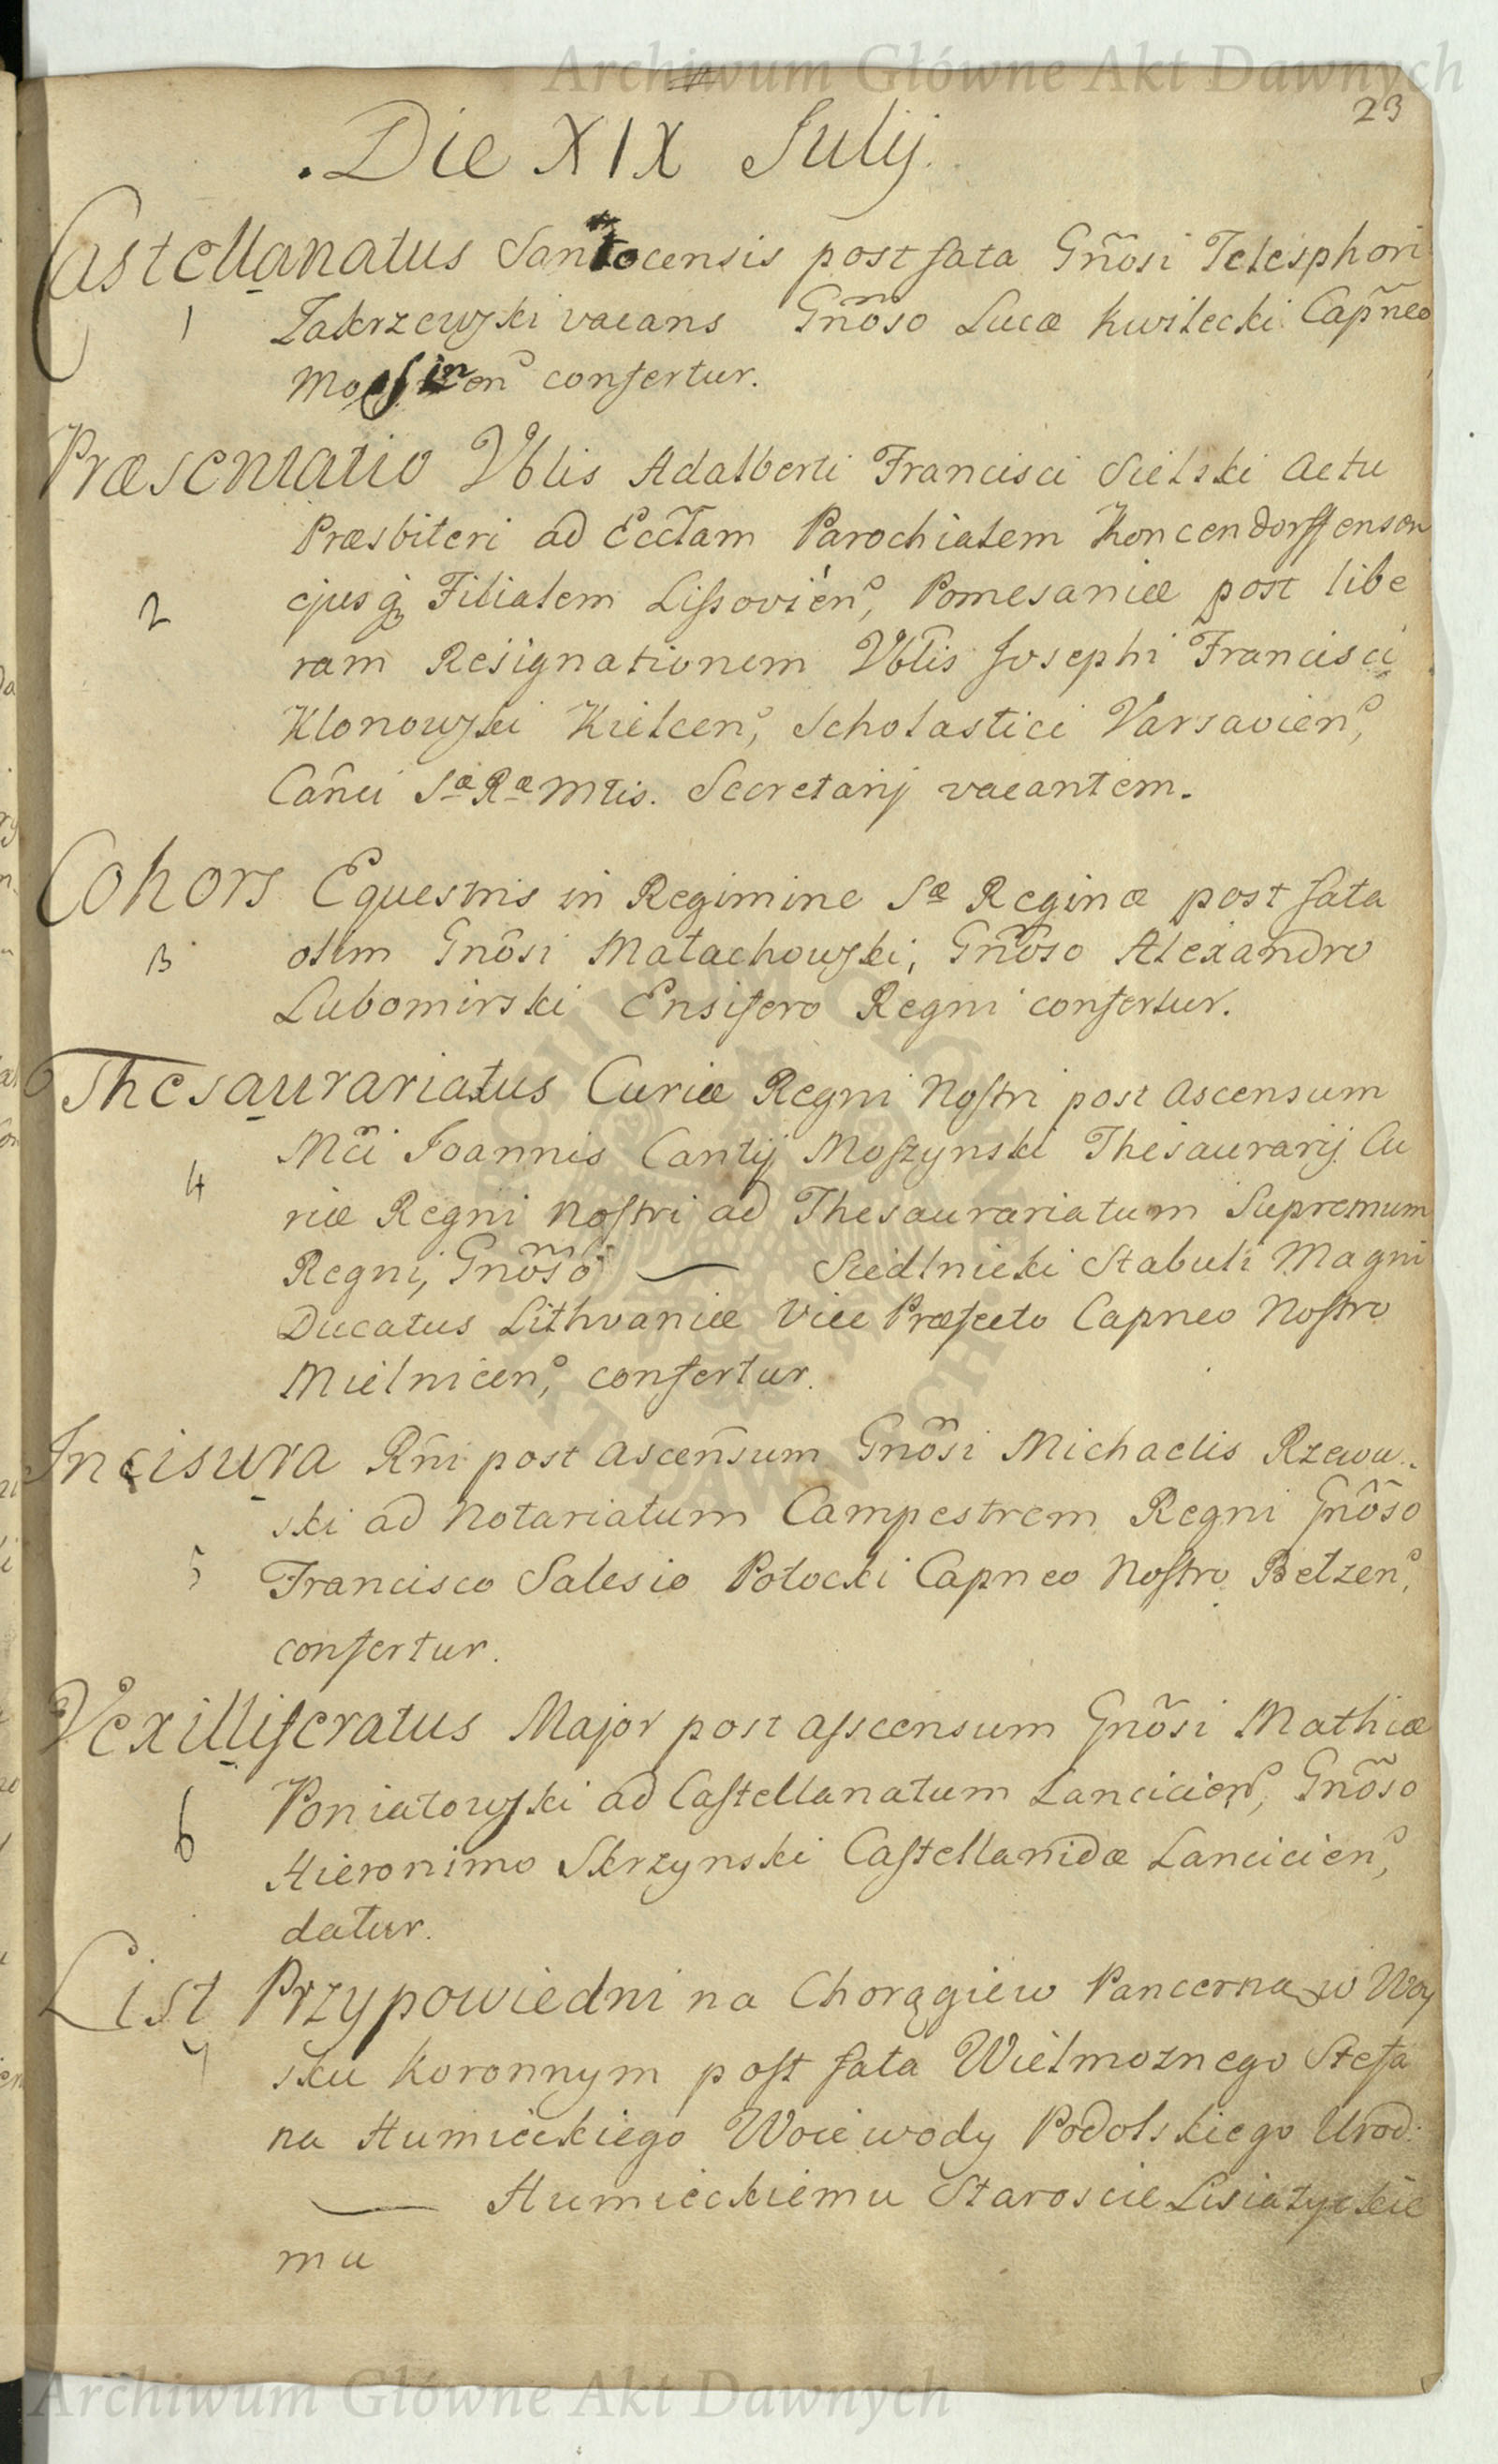 Archiwum Główne Akt Dawnych
23
Die XIX Julij.
Castellanatus Santocensis post fata Gñosi Telesphori
1 Zakrzewski vacans Gñoso Lucæ Kwilecki Capñeo
confertur.
Præsentatio Vblis Adalberti Francisci Sielski actu
Præsbiteri ad Ecclam Parochialem Koncendorffensen
2 ejusq Filialem Lissovien, Pomesaniæ post libe
ram Resignationem Vblis Josephi Francisci
Klonowski Kielcen, Scholastici Varsavien,
Cañci Sæ Ræ Mtis. Secretarij vacantem.
Cohors Equestris in Regimine Sæ Reginæ post fata
3 olim Gnôsi Małachowski, Gnõso Alexandro
Lubomirski Ensifero Regni confertur.
Thesaurariatus Curiæ Regni Nostri post ascensum
Mci Joannis Cantij Moszynski Thesaurarij Cu
4 riæ Regni Nostri ad Thesaurariatum Supremum
Regni, Gnõso — Siedlnicki Stabuli Magni
Ducatus Lithvaniæ Vice Præfecto Capneo Nostro
Mielnicen, confertur.
Incisura Rñi post ascensum Gnõsi Michaelis Rzewu
ski ad Notariatum Campestrem Regni Gnõso
5 Francisco Salesio Potocki Capneo Nostro Betzen,
confertur.
Vexilliferatus Major post asscensum Gnõsi Mathiæ
6 Poniatowski ad Castellanatum Lancicien, Gnõso
Hieronimo Skrzynski Castellanidæ Lancicien,
datur.
List Przypowiedni na Chorągiew Pancerną w Woy
7 sku Koronnym post fata Wielmoznego Stefa
na Humieckiego Woiewody Podolskiego Urod:
— Humieckiemu Staroscie Lisiatyckie
mu
Archiwum Główne Akt Dawnych